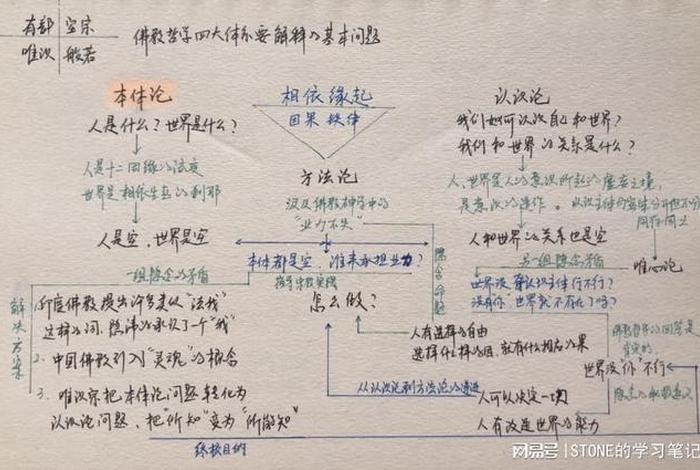 有部 空宗
唯识 般若
佛教哲学四大体系要解释的基本问题
本体论
人是什么？世界是什么？
人是十二因缘的法度
世界是相依生灭的刹那
人是空，世界是空
一组隐含的矛盾
解决方案
1.印度佛教提出许多类似“法我”
这样的词，隐讳的承认了一个“我”
2.中国佛教引入“灵魂”的概念
3.唯识宗把本体论问题转化为
认识论问题，把“所知”变为“所能知”
终极目的
相依缘起
因果铁律
方法论
涉及佛教哲学中的
“业力不失”
本体都是空，谁来承担业力？
指导佛教实践
怎么做？
隐含命题
人有选择的自由
选择什么样的因，就有什么相应的果
从认识论到方法论的递进
人可以决定一切
人有改造世界的能力
认识论
我们如何认识自己和世界？
我们和世界的关系是什么？
人、世界是人的意识所起的虚妄之境，
是意识的造作。
人和世界的关系也是空
另一组隐含矛盾
唯心论
世界没有认识主体行不行？
没有“你”世界就不存在了吗？
佛教哲学的回答是
肯定的，
世界没“你”不行
网易号 | STONE的学习笔记